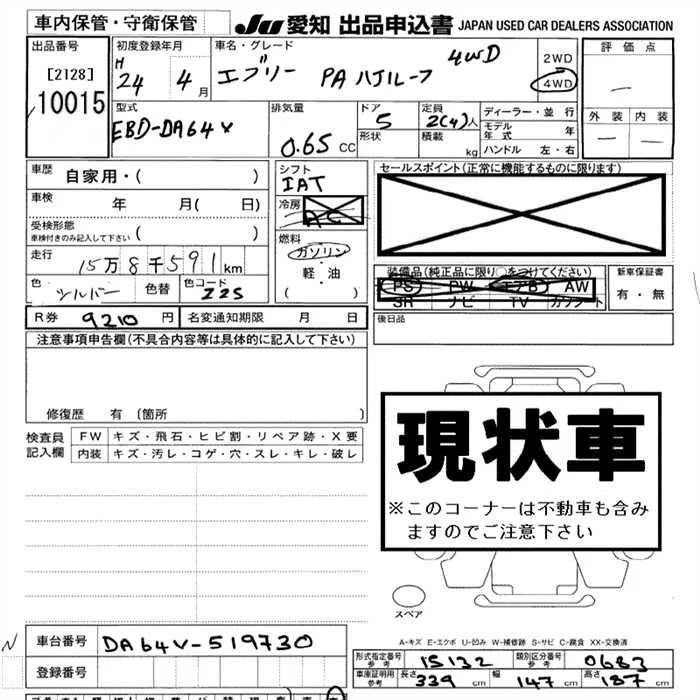 車内保管・守衛保管 JU 愛知 出品申込書 JAPAN USED CAR DEALERS ASSOCIATION
出品番号 [2128] 10015
初度登録年月 H 24 4月
車名・グレード エブリー PA ハイルーフ 4WD
2WD
4WD
評価点 —
外装 — 内装 —
型式 EBD-DA64V
排気量 0.65 CC
ドア 5 形状
定員 2(4)人 積載 kg
ディーラー・並行
モデル年式 年
ハンドル 左・右
車歴 自家用・( )
車検 年 月( 日)
受検形態 車検付きのみ記入して下さい ( )
走行 15万8千591km
色 シルバー 色替 色コード Z2S
シフト IAT
冷房 AC
燃料 ガソリン
軽・油
( )
セールスポイント(正常に機能するものに限ります)
装備品(純正品に限り○をつけてください)
PS PW エアB AW
SR ナビ TV カワシート
新車保証書
有・無
後日品
R券 9210 円 名変通知期限 月 日
注意事項申告欄(不具合内容等は具体的に記入して下さい)
修復歴 有 〔箇所 〕
検査員記入欄
FW キズ・飛石・ヒビ割・リペア跡・X要
内装 キズ・汚レ・コゲ・穴・スレ・キレ・破レ
現状車
※このコーナーは不動車も含み
ますのでご注意下さい
スペア
A-キズ E-エクボ U-凹み W-補修跡 S-サビ C-腐食 XX-交換済
N 車台番号 DA64V-519730
登録番号
形式指定番号 参考 15132 類別区分番号 参考 0683
車庫証明用 参考 長さ 339 cm 幅 147 cm 高さ 187 cm